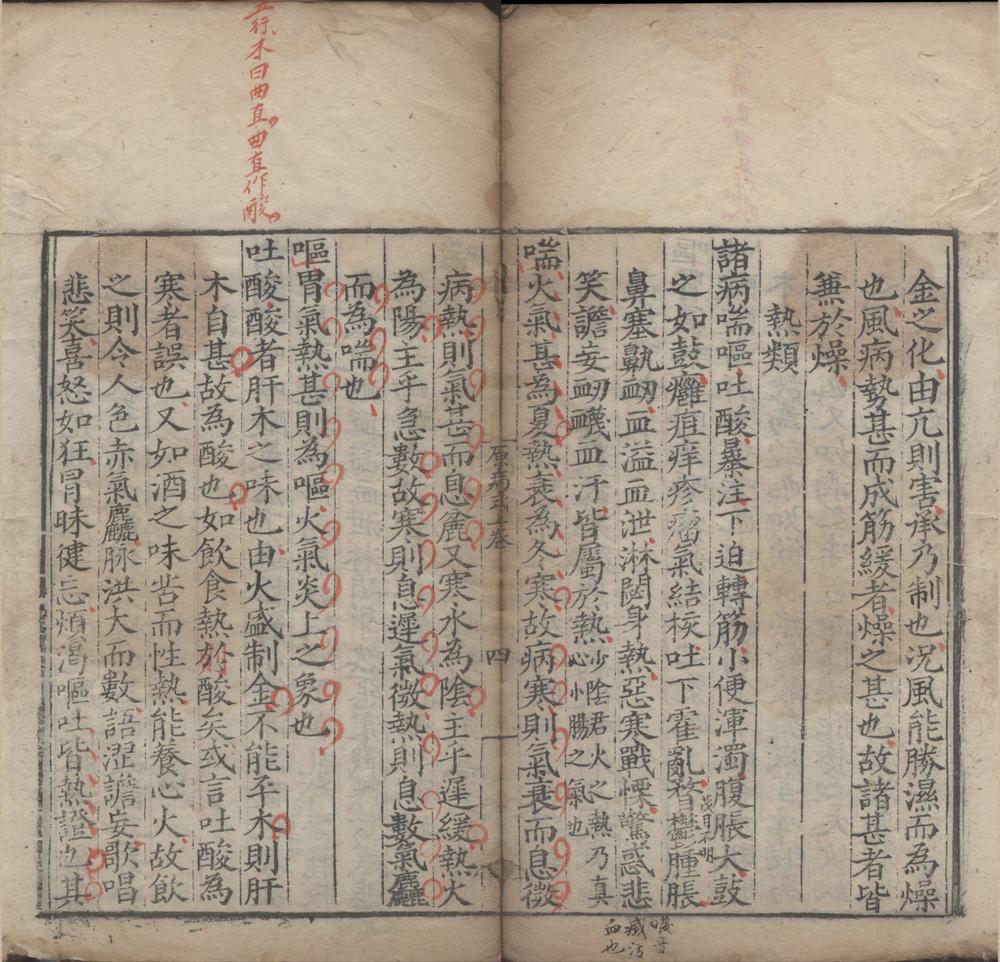 金之化由亢則害承乃制也況風能勝濕而為燥
也風病勢甚而成筋緩者燥之甚也故諸甚者皆
兼於燥
熱類
諸病喘嘔吐酸暴注下迫轉筋小便渾濁腹脹大鼓
之如鼓癰疽瘍疹瘤氣結核吐下霍亂瞀鬱腫脹
鼻塞鼽衄血溢血泄淋閟身熱惡寒戰慄驚惑悲
笑譫妄衄衊血汗皆屬於熱少陰君火之熱乃真
心小腸之氣也
喘火氣甚為夏熱衰為冬寒故病寒則氣衰而息微
病熱則氣甚而息麄又寒水為陰主乎遲緩熱火
為陽主乎急數故寒則息遲氣微熱則息數氣麤
而為喘也
嘔胃氣熱甚則為嘔火氣炎上之象也
吐酸酸者肝木之味也由火盛制金不能平木則肝
木自甚故為酸也如飲食熱於酸矣或言吐酸為
寒者誤也又如酒之味苦而性熱能養心火故飲
之則令人色赤氣麤脉洪大而數語澀譫妄歌唱
悲笑喜怒如狂冒昧健忘煩渴嘔吐皆熱證也其
原病式上卷
四
五行木曰曲直曲直作酸
衊音
衊污
血也